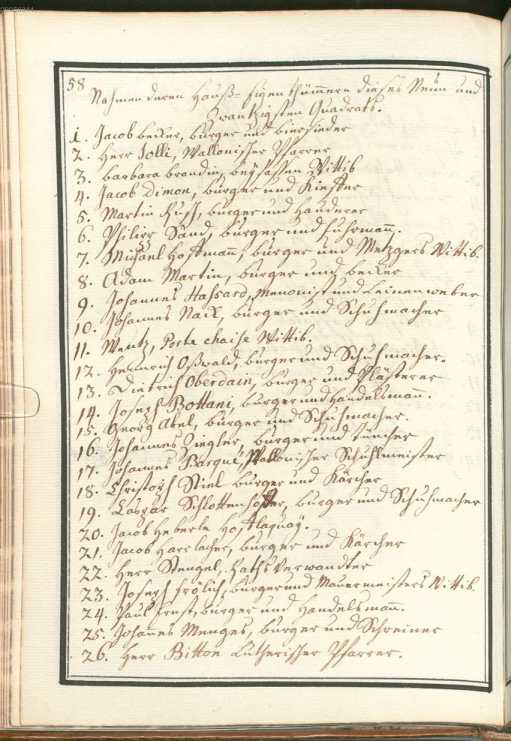 58
Nahmen deren Hauß-Eigenthümmere dieses Neün und
Zwantzigsten Quadrats.
1. Jacob Becker, burger und biersieder
2. Herr Jolli, Wallonischer Pfarrer
3. barbara brandin, beysassen Wittib
4. Jacob Dimon, burger und Kiefler
5. Martin burger und Hauderer
6. Philipp Sand, burger und fuhrmann.
7. Michael Hoffmann, burger und Metzgers Wittib.
8. Adam Martin, burger und becker
9. Johannes Hassard, Menonist und Leinenweber
10. Johannes Naik, burger und Schuhmacher
11. Wentz, Porte chaise Wittib.
12. Heinrich Oßwald, burger und Schuhmacher.
13. Dietrich Oberdain, burger und Plästerer
14. Joseph Bottani, burger und Handelsman.
15. Georg Abel, burger und Schuhmacher.
16. Johannes Ziegler, burger und tüncher
17. Johannes Parquit, Wallonischer Schulmeister
18. Christoph Stiel burger und Kärcher
19. Caspar burger und Schuhmacher
20. Jacob Heberle Hof Laquay.
21. Jacob Harlacher, burger und Kärcher
22. Herr Stengel, Raths Verwandter
23. Joseph frölich, burger und Mauermeisters Wittib.
24. Paul Ernst, burger und Handelsmann.
25. Johannes Menges, burger und Schreiner
26. Herr Bitton Lutherischer Pfarrer.